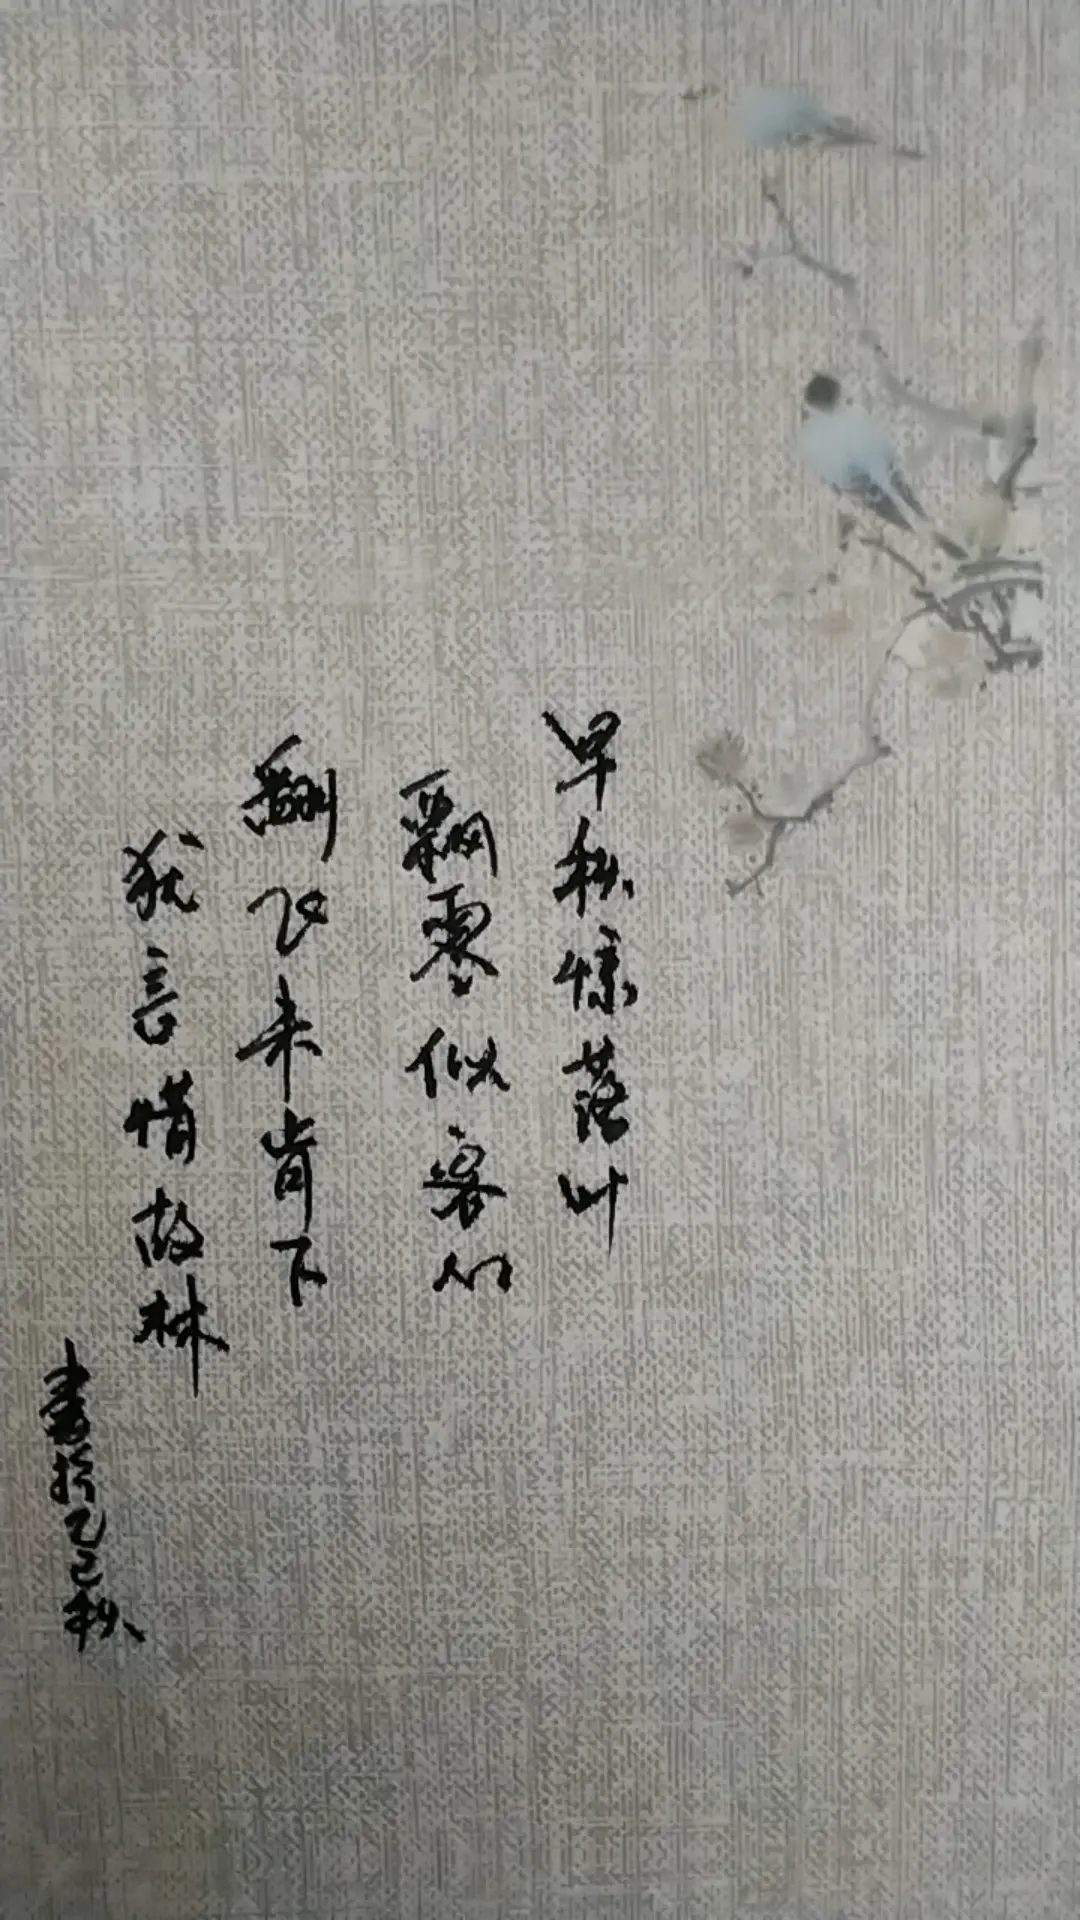 早秋惊落叶
飘零似客心
翻飞未肯下
犹言惜故林
书于乙巳秋